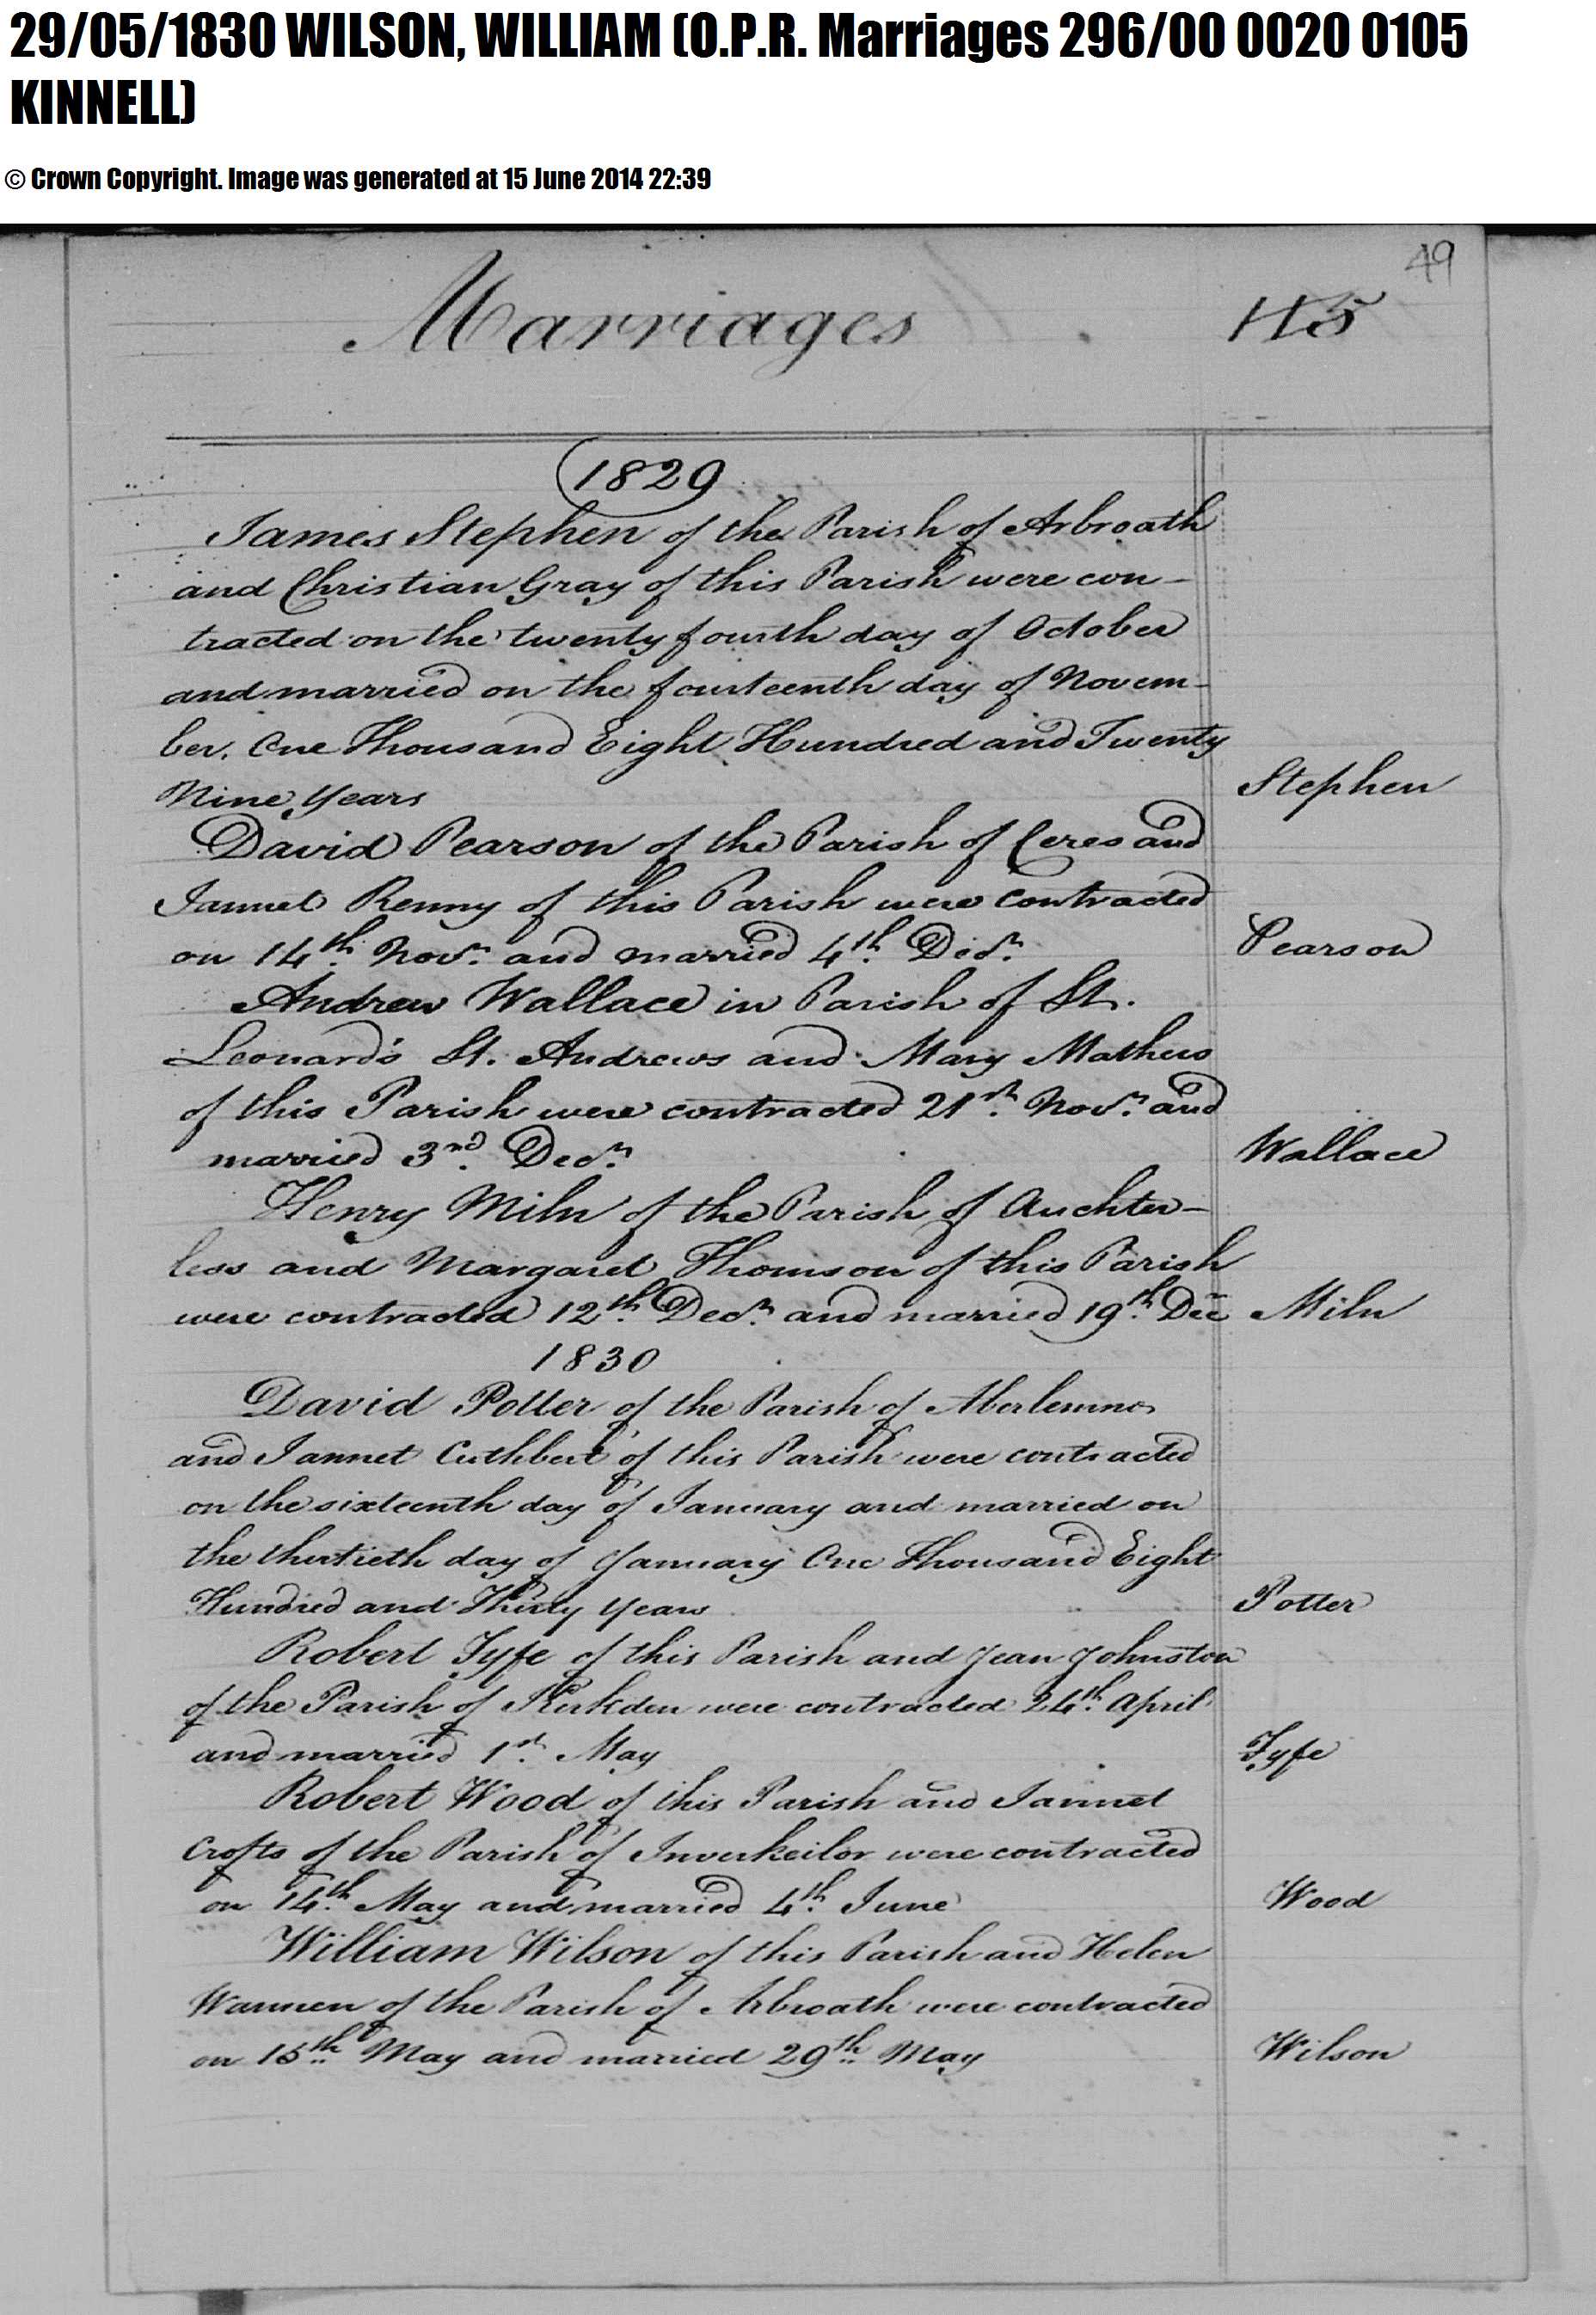 29/05/1830 WILSON, WILLIAM (O.P.R. Marriages 296/00 0020 0105
KINNELL)
© Crown Copyright. Image was generated at 15 June 2014 22:39
49
Marriages
115
1829
James Stephen of the Parish of Arbroath
and Christian Gray of this Parish were con-
tracted on the twenty fourth day of October
and married on the fourteenth day of Novem-
ber. One Thousand Eight Hundred and Twenty
Nine Years
Stephen
David Pearson of the Parish of Ceres and
Jannet Renny of this Parish were contracted
on 14th Novr. and married 4th Decr.
Pearson
Andrew Wallace in Parish of St.
Leonard's St. Andrews and Mary Mathers
of this Parish were contracted 21st Novr. and
married 3rd. Decr.
Wallace
Henry Miln of the Parish of Auchter-
less and Margaret Thomson of this Parish
were contracted 12th. Decr. and married 19th. Dec
Miln
1830
David Potter of the Parish of Aberlemno
and Jannet Cuthbert of this Parish were contracted
on the sixteenth day of January and married on
the thirtieth day of January One Thousand Eight
Hundred and Thirty Years
Potter
Robert Fyfe of this Parish and Jean Johnston
of the Parish of Kirkden were contracted 24th. April
and married 1st. May
Fyfe
Robert Wood of this Parish and Jannet
Crofts of the Parish of Inverkeilor were contracted
on 14th. May and married 4th. June
Wood
William Wilson of this Parish and Helen
Wannen of the Parish of Arbroath were contracted
on 15th May and married 29th May
Wilson